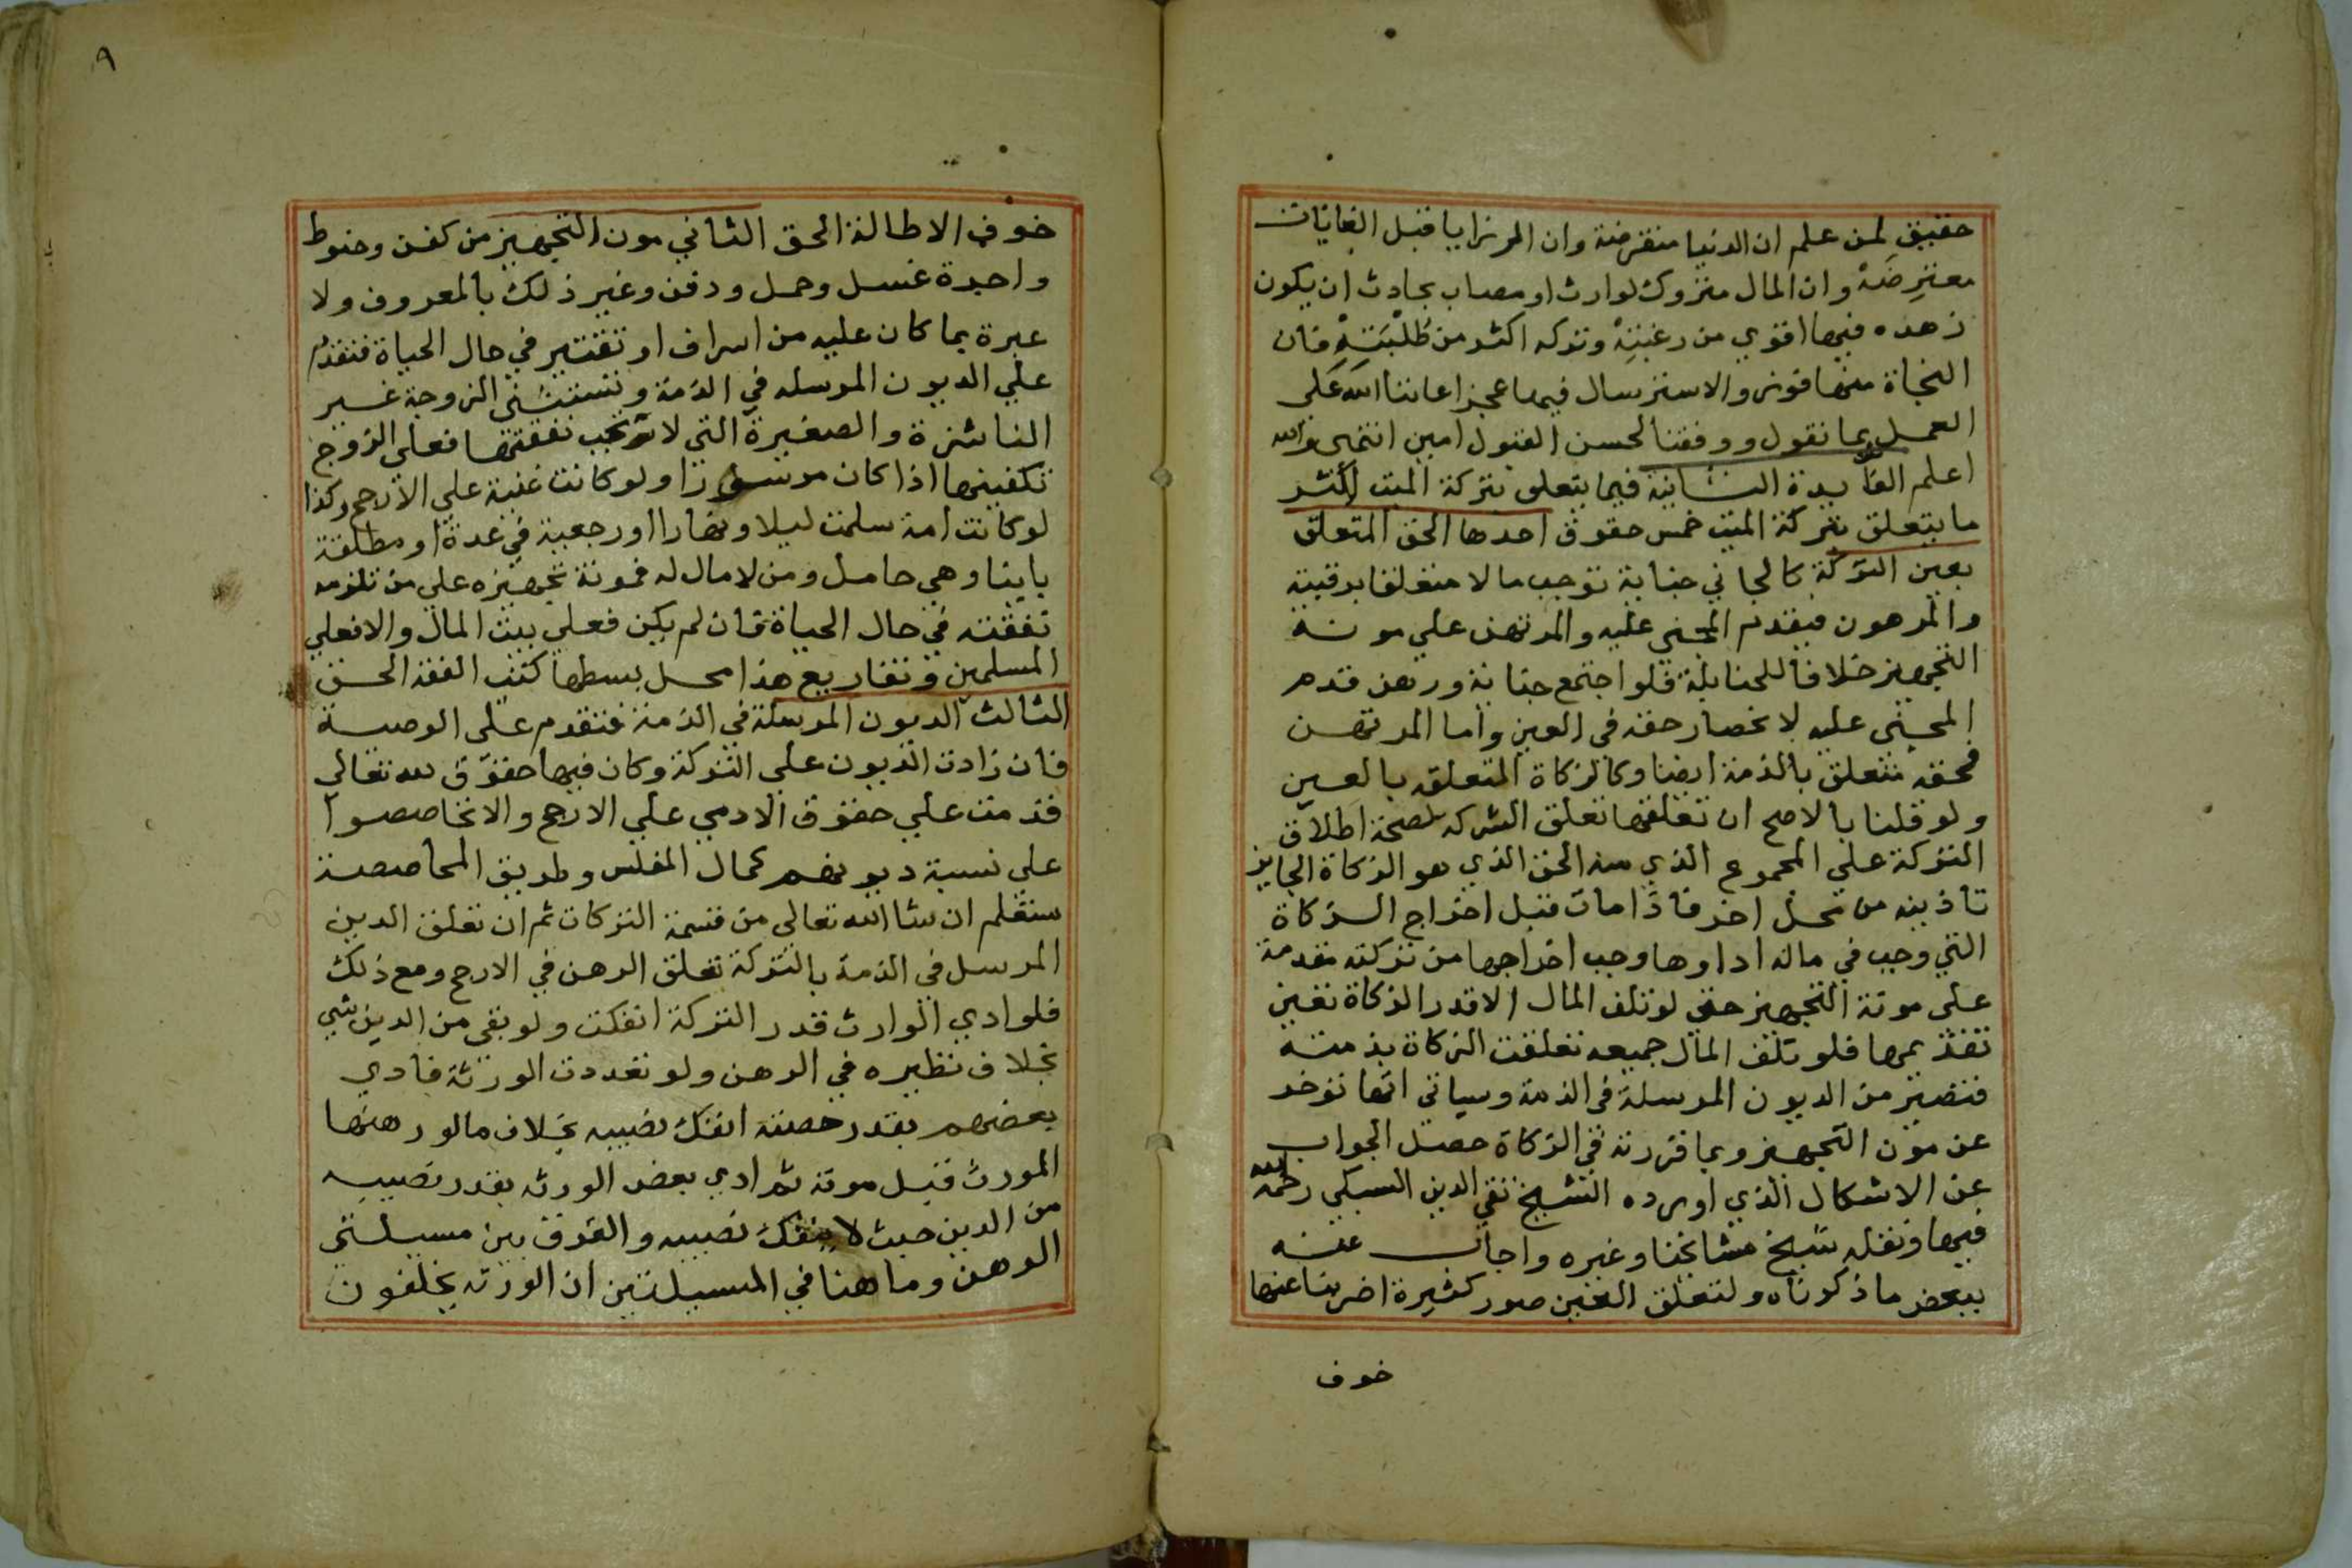 حقيق لمن علم ان الدنيا منقرضة وان الرزايا قبل الغايات
معترضة وان المال متروك لوارث او مصاب بحادث ان يكون
زهده فيها اقوي من رغبته وتركه اكثر من طلبته فان
النجاة منها فوز والاسترسال فيها عجز اعاننا الله على
العمل بما نقول ووفقنا لحسن القبول امين انتهى والله
اعلم الفايدة الثانية فيما يتعلق بتركة الميت اكثر
ما يتعلق بتركة الميت خمس حقوق احدها الحق المتعلق
بعين التركة كالجاني جناية توجب مالا متعلقا برقبته
والمرهون فيقدم المجني عليه والمرتهن علي مونة
التجهيز خلافا للحنابلة فلو اجتمع جناية ورهن قدم
المجني عليه لانحصار حقه في العين واما المرتهن
فحقه متعلق بالذمة ايضا وكالزكاة المتعلقه بالعين
ولو قلنا بالاصح ان تعلقها تعلق الشركه لصحة اطلاق
التركة علي المجموع الذي منه الحق الذي هو الزكاة الجايز
تاديته من محل اخر فاذا مات قبل اخراج الزكاة
التي وجب في ماله اداوها وجب اخراجها من تركته مقدمة
على مونة التجهيز حتى لو تلف المال الا قدر الزكاة تعين
تقديمها فلو تلف المال جميعه تعلقت الزكاة بذمته
فتصير من الديون المرسلة في الذمة وسياتي انها توخر
عن مون التجهيز وبما قررته في الزكاة حصل الجواب
عن الاشكال الذي اورده الشيخ تقي الدين السبكي رحمه الله
فيها ونقله شيخ مشايخنا وغيره واجاب عنه
ببعض ما ذكرناه ولتعلق العين صور كثيرة اضربنا عنها
خوف
٩
خوف الاطالة الحق الثاني مون التجهيز من كفن وحنوط
واجرة غسل وحمل ودفن وغير ذلك بالمعروف ولا
عبرة بما كان عليه من اسراف او تقتير في حال الحياة فتقدم
علي الديون المرسله في الذمة وتستثنى الزوجة غير
الناشزة والصغيرة التي لا تجب نفقتها فعلى الزوج
تكفينها اذا كان موسرا ولو كانت غنية علي الارجح وكذا
لو كانت امة سلمت ليلا ونهارا او رجعية في عدة او مطلقة
باينا وهي حامل ومن لا مال له فمونة تجهيزه علي من تلزمه
نفقته في حال الحياة فان لم يكن فعلي بيت المال والا فعلي
المسلمين وتفاريع هذا محل بسطها كتب الفقه الحق
الثالث الديون المرسلة في الذمة فتقدم على الوصية
فان زادت الديون علي التركة وكان فيها حقوق لله تعالي
قدمت علي حقوق الادمي علي الارجح والا تحاصصوا
على نسبة ديونهم كمال المفلس وطريق المحاصصة
ستعلم ان شا الله تعالى من قسمة التركات ثم ان تعلق الدين
المرسل في الذمة بالتركة تعلق الرهن في الارجح ومع ذلك
فلو ادي الوارث قدر التركة انفكت ولو بقي من الدين شي
بخلاف نظيره في الرهن ولو تعددت الورثة فادي
بعضهم بقدر حصته انفك نصيبه بخلاف ما لو رهنها
المورث قبل موته ثم ادي بعض الورثه بقدر نصيبه
من الدين حيث لا ينفك نصيبه والفرق بين مسيلتي
الرهن وما هنا في المسيلتين ان الورثه يخلفون